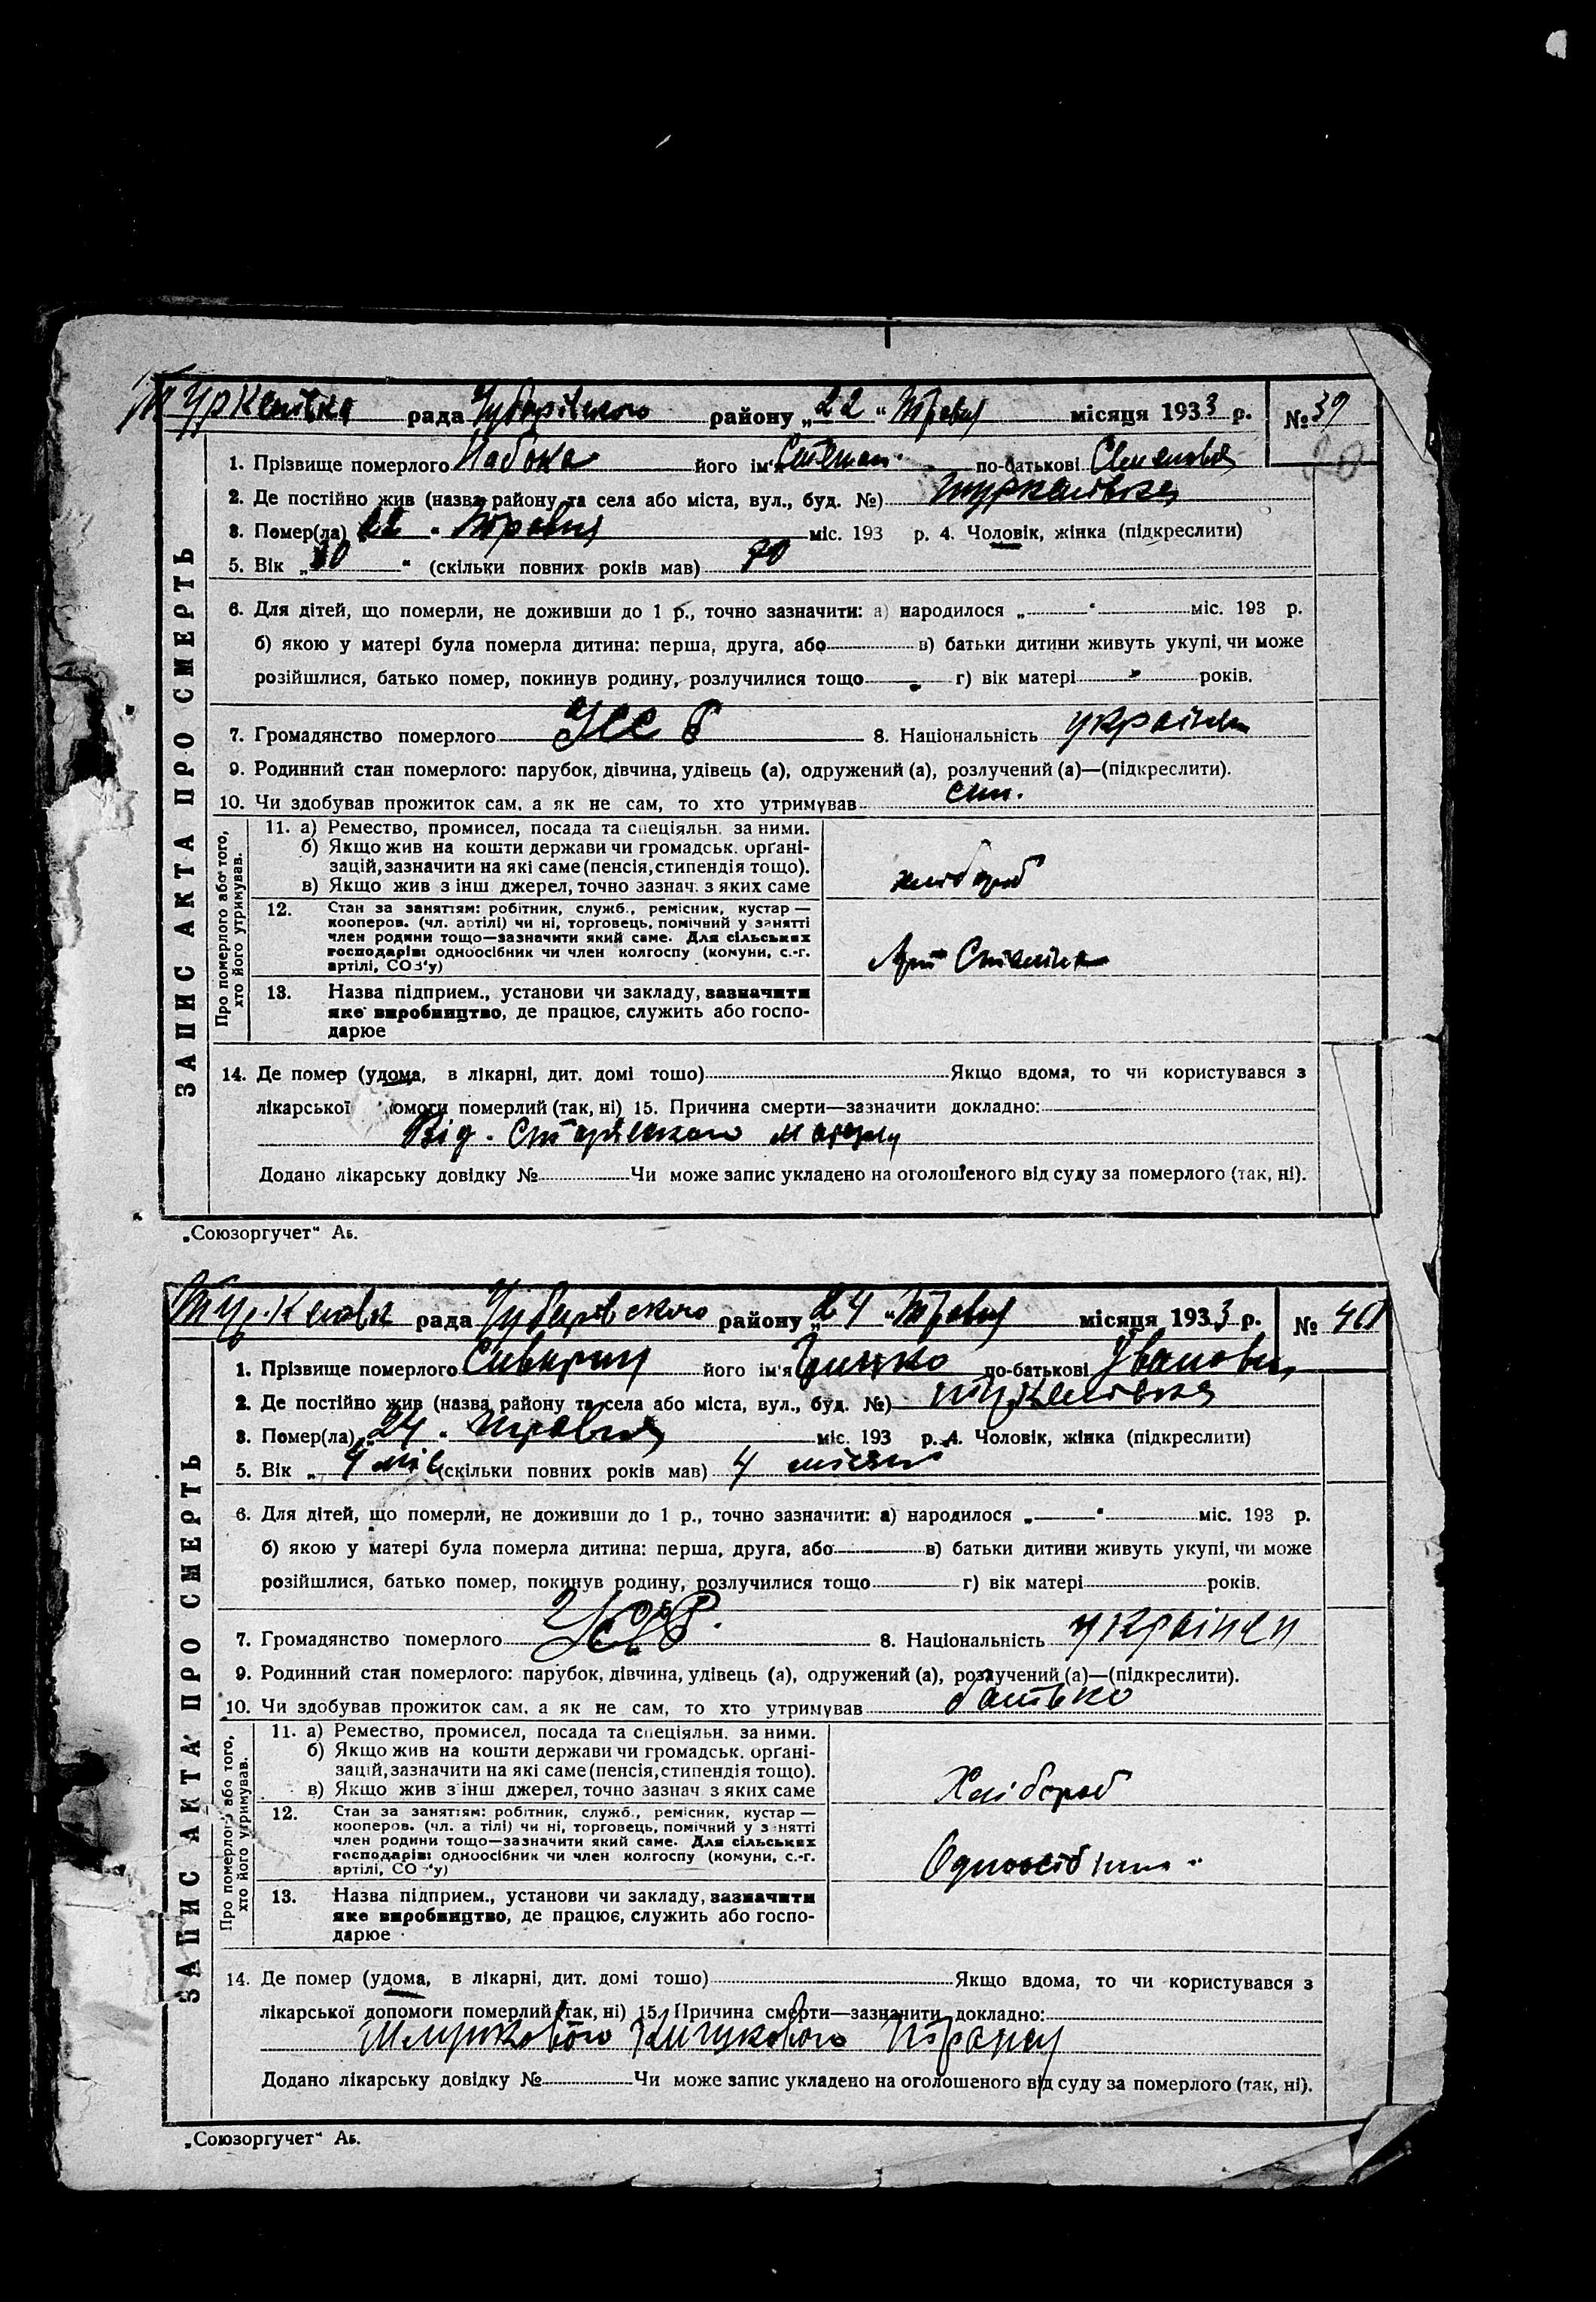 Туркенівка рада Чубарівського району „22“ Травня місяця 1933 р. № 39
1. Прізвище померлого Набока його ім'я Степан по-батькові
2. Де постійно жив (назва району та села або міста, вул., буд. №) Туркенівка
3. Помер(ла) 22 “ Травня міс. 193 р. 4. Чоловік, жінка (підкреслити)
5. Вік „ “ (скільки повних років мав) 70
6. Для дітей, що померли, не доживши до 1 р., точно зазначити: а) народилося „ “ міс. 193 р.
б) якою у матері була померла дитина: перша, друга, або в) батьки дитини живуть укупі, чи може
розійшлися, батько помер, покинув родину, розлучилися тощо г) вік матері років.
7. Громадянство померлого УССР 8. Національність українец
9. Родинний стан померлого: парубок, дівчина, удівець (а), одружений (а), розлучений (а)—(підкреслити).
10. Чи здобував прожиток сам, а як не сам, то хто утримував сам.
ЗАПИС АКТА ПРО СМЕРТЬ
Про померлого або того, хто його утримував.
11. а) Ремество, промисел, посада та спеціяльн. за ними.
б) Якщо жив на кошти держави чи громадськ. органі-
зацій, зазначити на які саме (пенсія, стипендія тощо).
в) Якщо жив з інш джерел, точно зазнач. з яких саме
хлібороб
12. Стан за заняттям: робітник, служб., ремісник, кустар —
кооперов. (чл. артілі) чи ні, торговець, помічний у занятті
член родини тощо—зазначити який саме. Для сільських
господарів: одноосібник чи член колгоспу (комуни, с.-г.
артілі, СОЗ'у)
Арт Сталіна
13. Назва підприєм., установи чи закладу, зазначити
яке виробництво, де працює, служить або госпо-
дарює
14. Де помер (удома, в лікарні, дит. домі тошо) Якщо вдома, то чи користувався з
лікарської допомоги померлий (так, ні) 15. Причина смерти—зазначити докладно:
Від
Додано лікарську довідку № Чи може запис укладено на оголошеного від суду за померлого (так, ні).
„Союзоргучет“ Аб.
Туркенівка рада Чубарівського району „24 “ Травня місяця 1933 р. № 40
1. Прізвище померлого його ім'я Грицко по-батькові Іванович
2. Де постійно жив (назва району та села або міста, вул., буд. №) Туркенівка
3. Помер(ла) „24 “ травня міс. 193 р. 4. Чоловік, жінка (підкреслити)
5. Вік „ 4 міс (скільки повних років мав) 4 місяці
6. Для дітей, що померли, не доживши до 1 р., точно зазначити: а) народилося „ “ міс. 193 р.
б) якою у матері була померла дитина: перша, друга, або в) батьки дитини живуть укупі, чи може
розійшлися, батько помер, покинув родину, розлучилися тощо г) вік матері років.
7. Громадянство померлого УССР. 8. Національність українец
9. Родинний стан померлого: парубок, дівчина, удівець (а), одружений (а), розлучений (а)—(підкреслити).
10. Чи здобував прожиток сам, а як не сам, то хто утримував батько
ЗАПИС АКТА ПРО СМЕРТЬ
Про померлого або того, хто його утримував.
11. а) Ремество, промисел, посада та спеціяльн. за ними.
б) Якщо жив на кошти держави чи громадськ. органі-
зацій, зазначити на які саме (пенсія, стипендія тощо).
в) Якщо жив з інш джерел, точно зазнач з яких саме
Хлібороб
12. Стан за заняттям: робітник, служб., ремісник, кустар —
кооперов. (чл. а тілі) чи ні, торговець, помічний у з нятті
член родини тощо—зазначити який саме. Для сільських
господарів: одноосібник чи член колгоспу (комуни, с.-г.
артілі, СО 'у)
Одноосібник
13. Назва підприєм., установи чи закладу, зазначити
яке виробництво, де працює, служить або госпо-
дарює
14. Де помер (удома, в лікарні, дит. домі тошо) Якщо вдома, то чи користувався з
лікарської допомоги померлий (так, ні) 15. Причина смерти—зазначити докладно:
Додано лікарську довідку № Чи може запис укладено на оголошеного від суду за померлого (так, ні).
„Союзоргучет“ Аб.